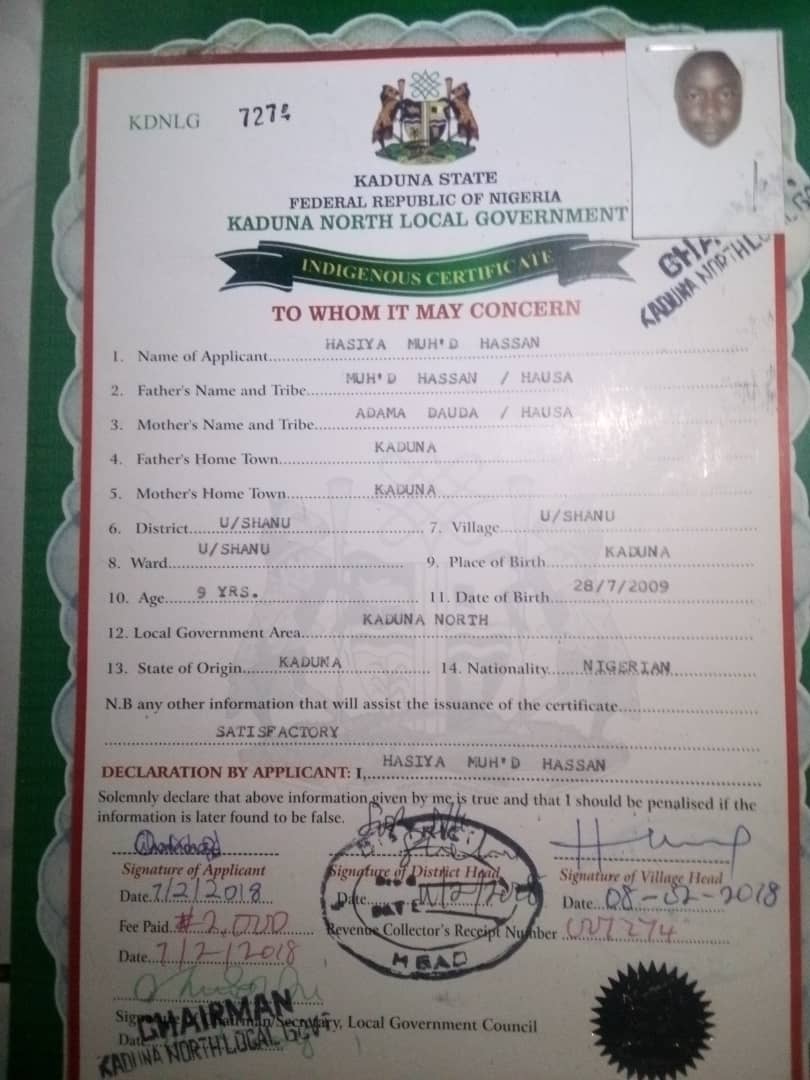 KDNLG 727
KADUNA STATE
FEDERAL REPUBLIC OF NIGERIA
KADUNA NORTH LOCAL GOVERNMENT
INDIGENOUS CERTIFICATE
CHA
KADUNA NORTH
TO WHOM IT MAY CONCERN
1. Name of Applicant HASIYA MUH'D HASSAN
2. Father's Name and Tribe MUH'D HASSAN / HAUSA
3. Mother's Name and Tribe ADAMA DAUDA / HAUSA
4. Father's Home Town KADUNA
5. Mother's Home Town KADUNA
6. District U/SHANU 7. Village U/SHANU
8. Ward U/SHANU 9. Place of Birth KADUNA
10. Age 9 YRS. 11. Date of Birth 28/7/2009
12. Local Government Area KADUNA NORTH
13. State of Origin KADUNA 14. Nationality NIGERIAN
N.B any other information that will assist the issuance of the certificate
SATISFACTORY
DECLARATION BY APPLICANT: I, HASIYA MUH'D HASSAN
Solemnly declare that above information given by me is true and that I should be penalised if the
information is later found to be false.
Signature of Applicant Signature of District Head Signature of Village Head
Date 7/2/2018 Date Date 08-02-2018
Fee Paid Revenue Collector's Receipt Number
Date 7/2/2018
HEAD
CHAIRMAN
Secretary, Local Government Council
KADUNA NORTH LOCAL GOVT